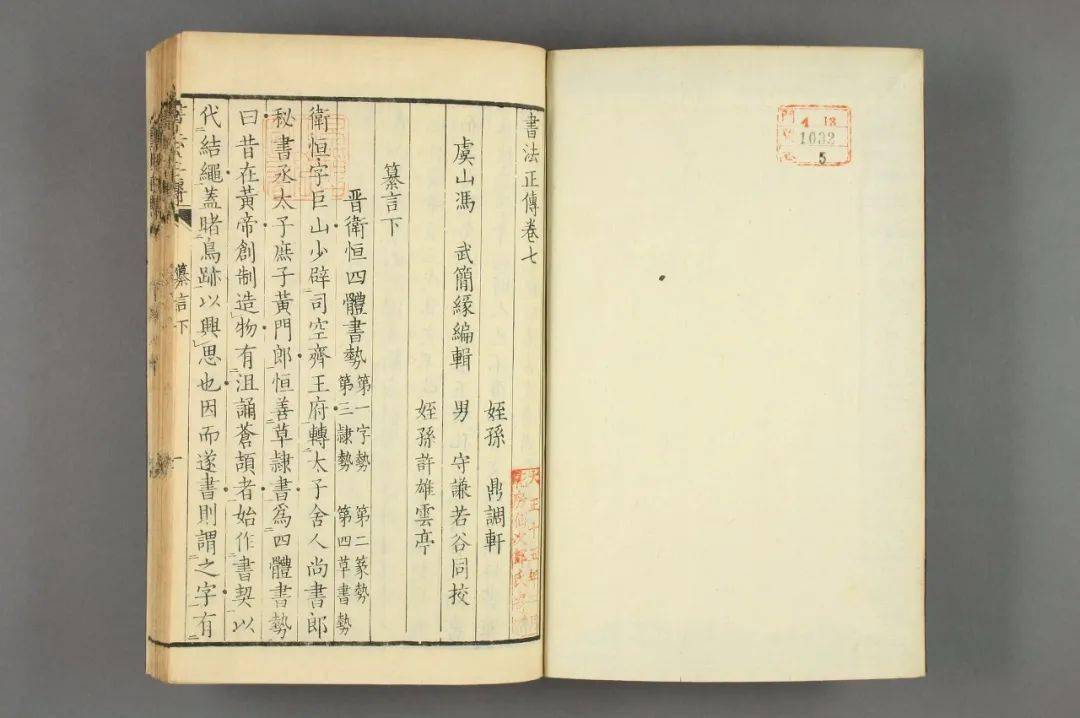 1032
5
書法正傳卷七
姪孫 鼎調軒
虞山馮 武簡緣編輯 男 守謙若谷同挍
姪孫許雄雲亭
纂言下
晉衛恒四體書勢 第一字勢 第二篆勢
第三隸勢 第四草書勢
衛恒字巨山少辟司空齊王府轉太子舍人尚書郎
秘書丞太子庶子黃門郎恒善草隸書為四體書勢
曰昔在黃帝創制造物有沮誦蒼頡者始作書契以
代結繩蓋睹鳥跡以興思也因而遂書則謂之字有
纂言下
一
大正十五年